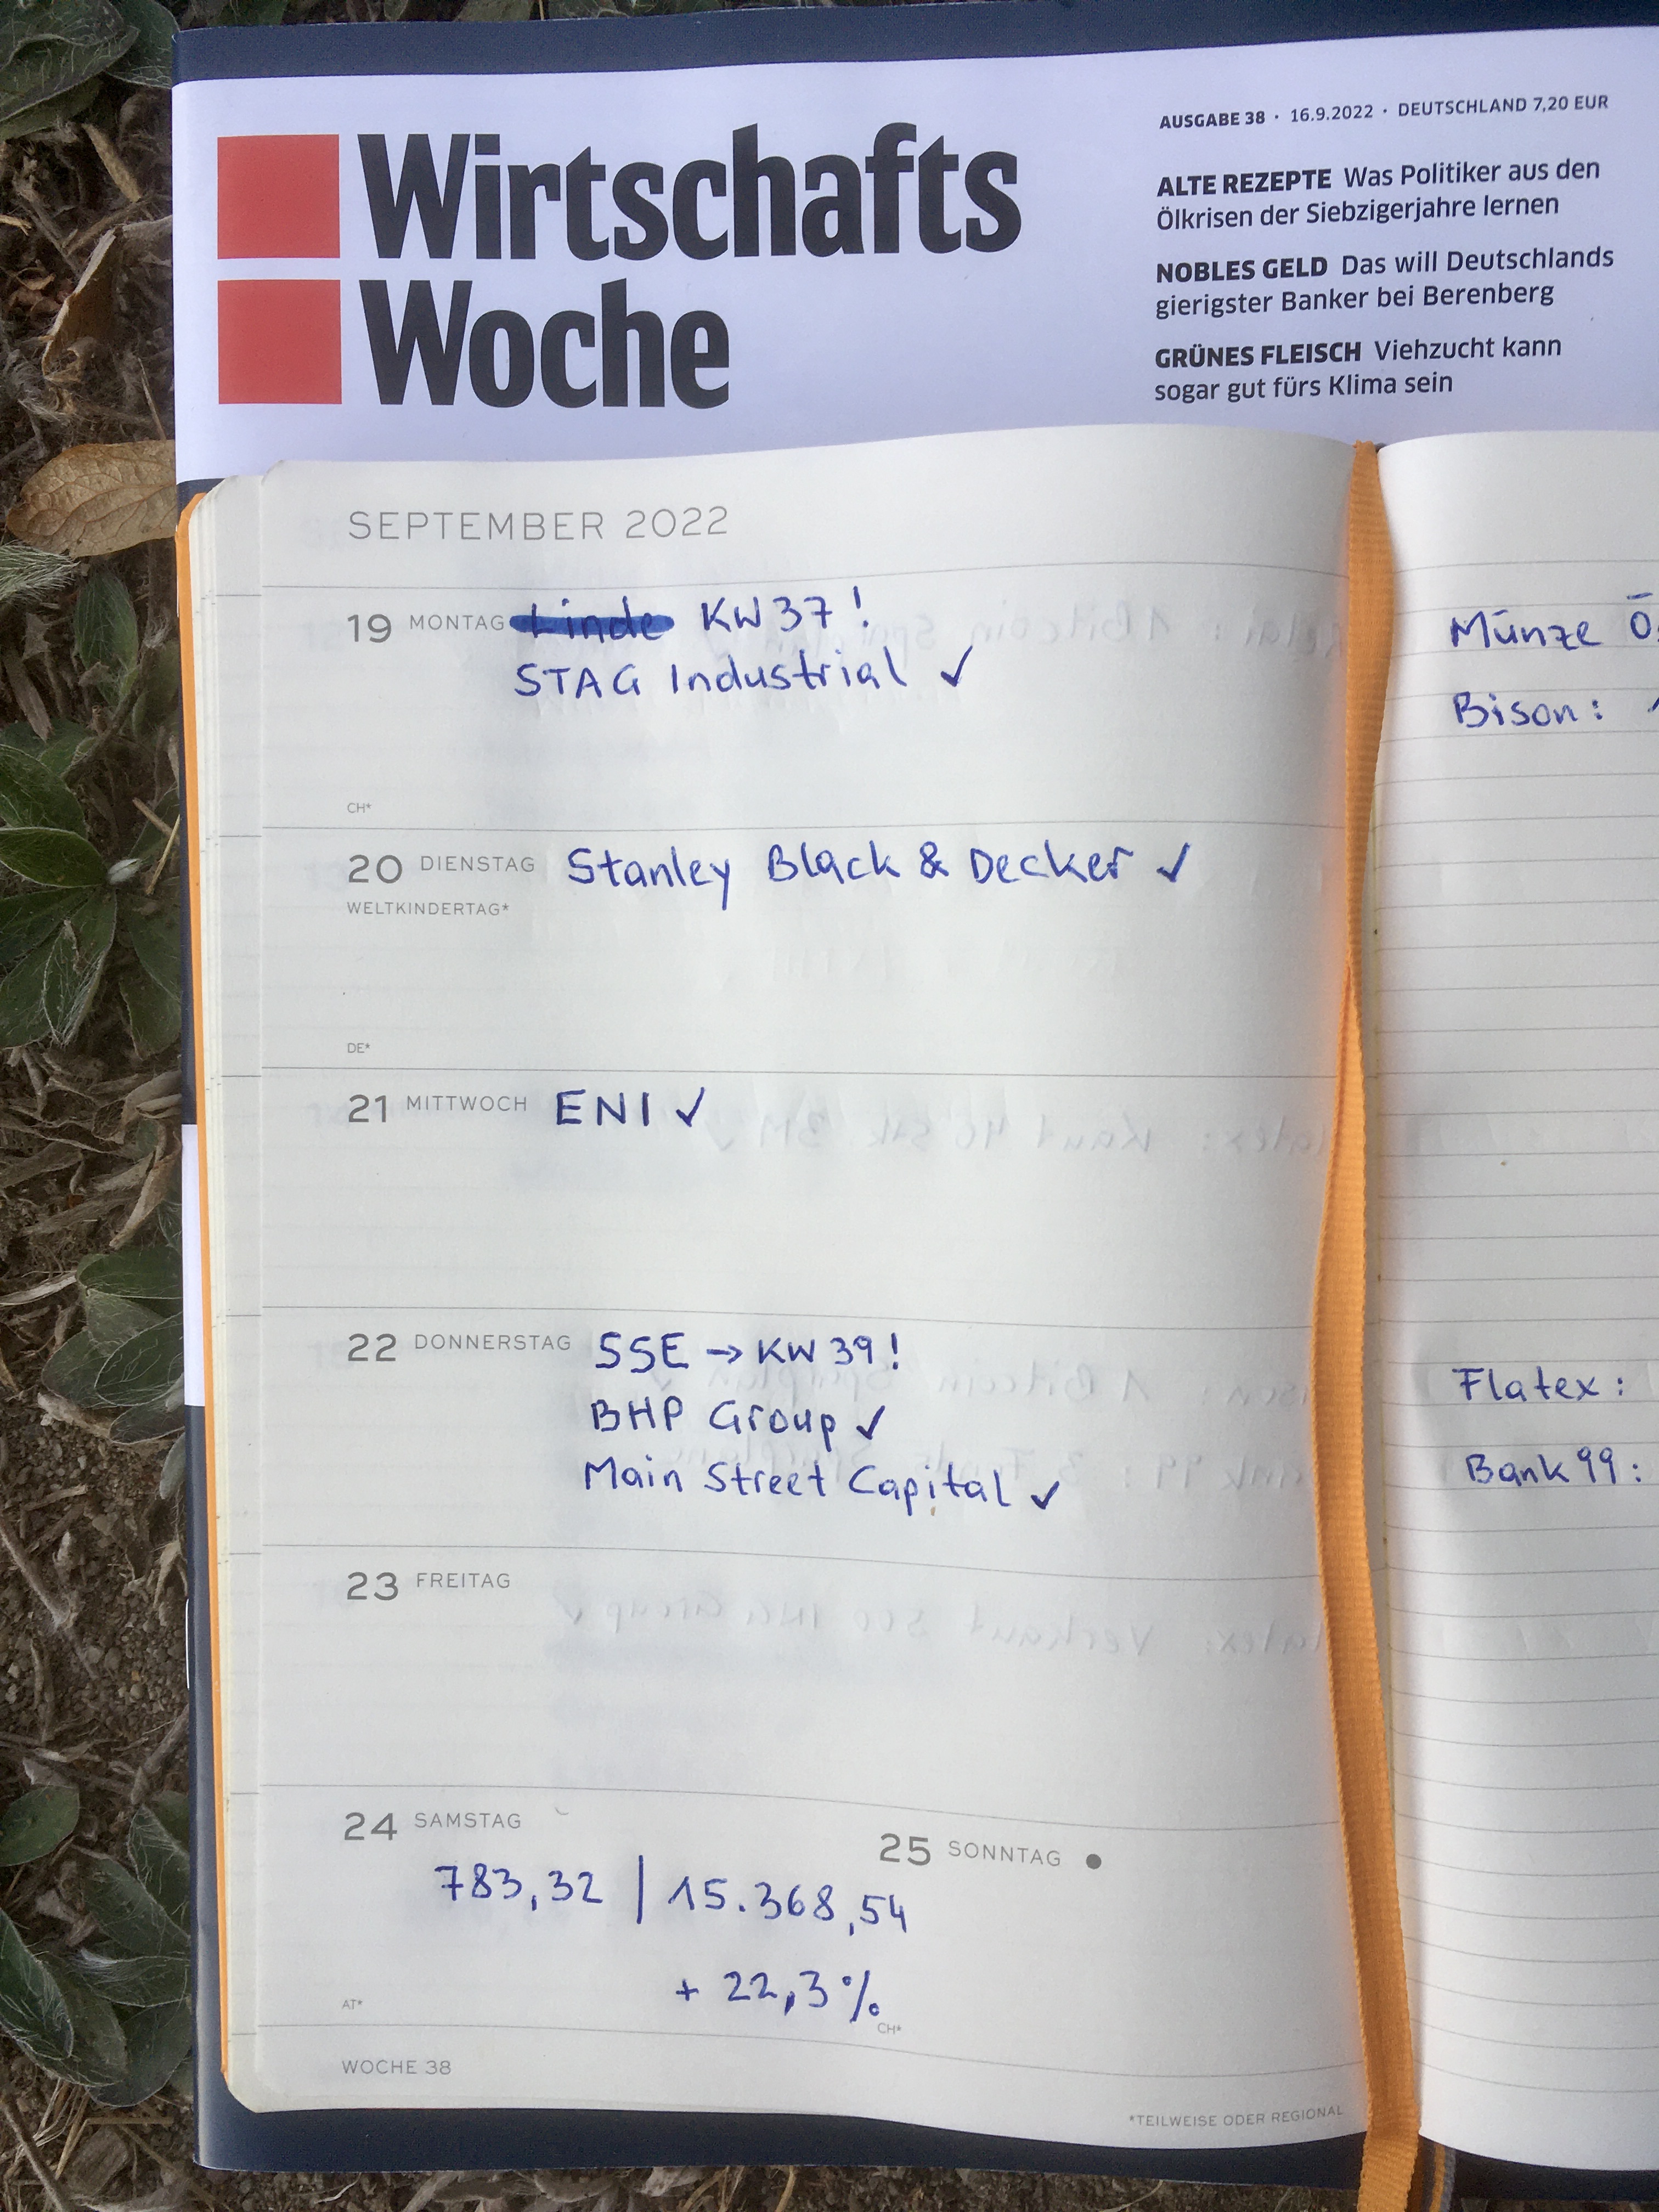 Wirtschafts
Woche
AUSGABE 38 · 16.9.2022 · DEUTSCHLAND 7,20 EUR
ALTE REZEPTE Was Politiker aus den
Ölkrisen der Siebzigerjahre lernen
NOBLES GELD Das will Deutschlands
gierigster Banker bei Berenberg
GRÜNES FLEISCH Viehzucht kann
sogar gut fürs Klima sein
SEPTEMBER 2022
19 MONTAG Linde KW 37!
STAG Industrial ✓
CH*
20 DIENSTAG Stanley Black & Decker ✓
WELTKINDERTAG*
DE*
21 MITTWOCH ENI ✓
22 DONNERSTAG SSE → KW 39!
BHP Group ✓
Main Street Capital ✓
23 FREITAG
24 SAMSTAG
25 SONNTAG ●
783,32 | 15.368,54
+ 22,3%
AT*
CH*
WOCHE 38
*TEILWEISE ODER REGIONAL
Münze Ö
Bison:
Flatex:
Bank99: